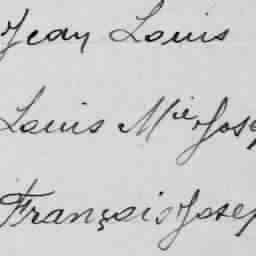 Jean Louis
Louis Mie Jose
François Josep